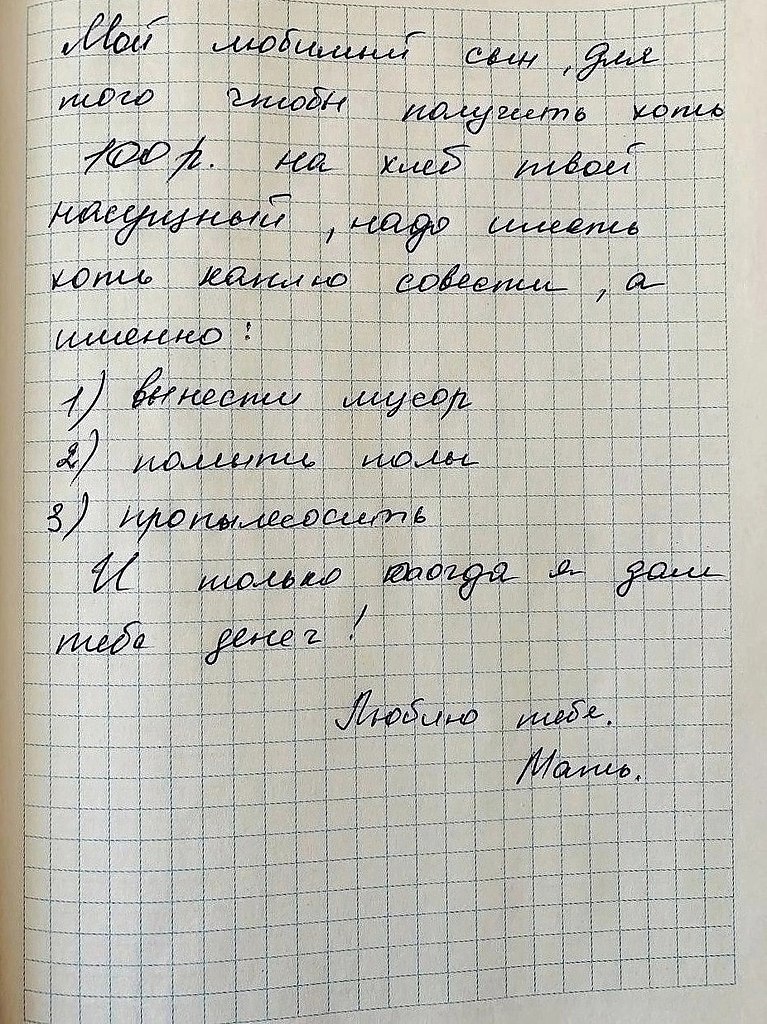 Мой любимый сын, для
того чтобы получить хоть
100 р. на хлеб твой
насущный, надо иметь
хоть каплю совести, а
именно:
1) вынести мусор
2) помыть полы
3) пропылесосить
И только тогда я дам
тебе денег!
Люблю тебя.
Мать.